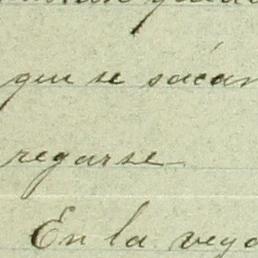 que se sacan
regarse
En la vega